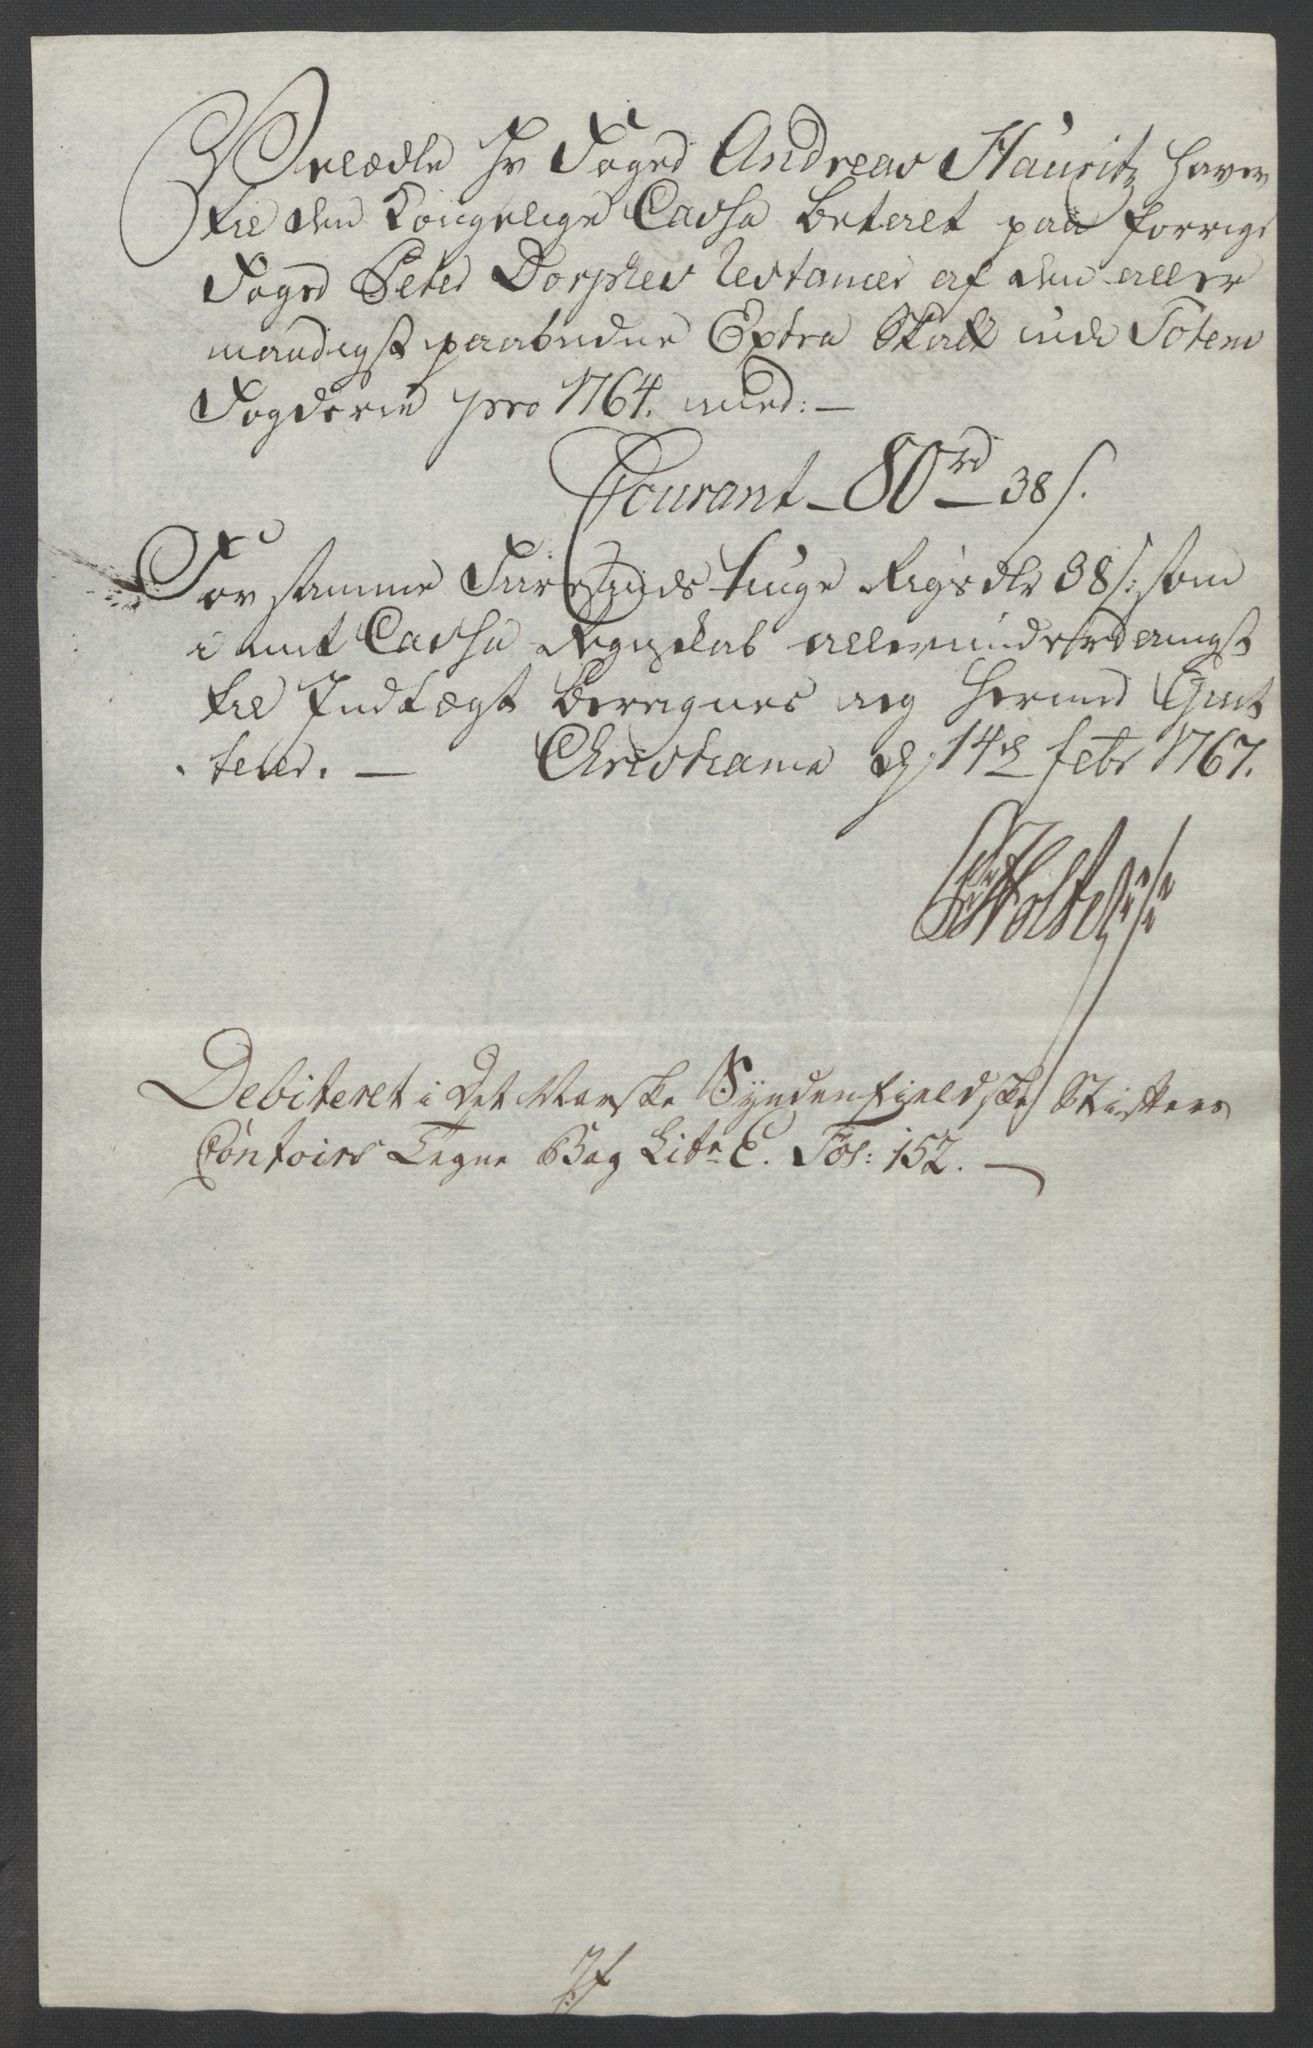 Velædle Hr Foged Andreas Hauritz haver
til den Kongelige Cassa betalt paa forrige
Foged Peter Dorphes Restancer af den aller
naadigst paabudne Extra Skatt udi Totens
Fogderie pro 1764. med: —
Courant — 80 rd — 38 s.
For samme Firesinds tiuge Rigsdlr 38 s: som
i mit Cassa Regnskab allerunderdanigst
til Indtægt beregnes ieg hermed Qvit
terer. — Christiania d: 14de febr 1767.
Holte
Debiteret i Det Norske Syndenfieldske Stifters
Contoirs Tegne Bog Litr C. Fol: 152. —